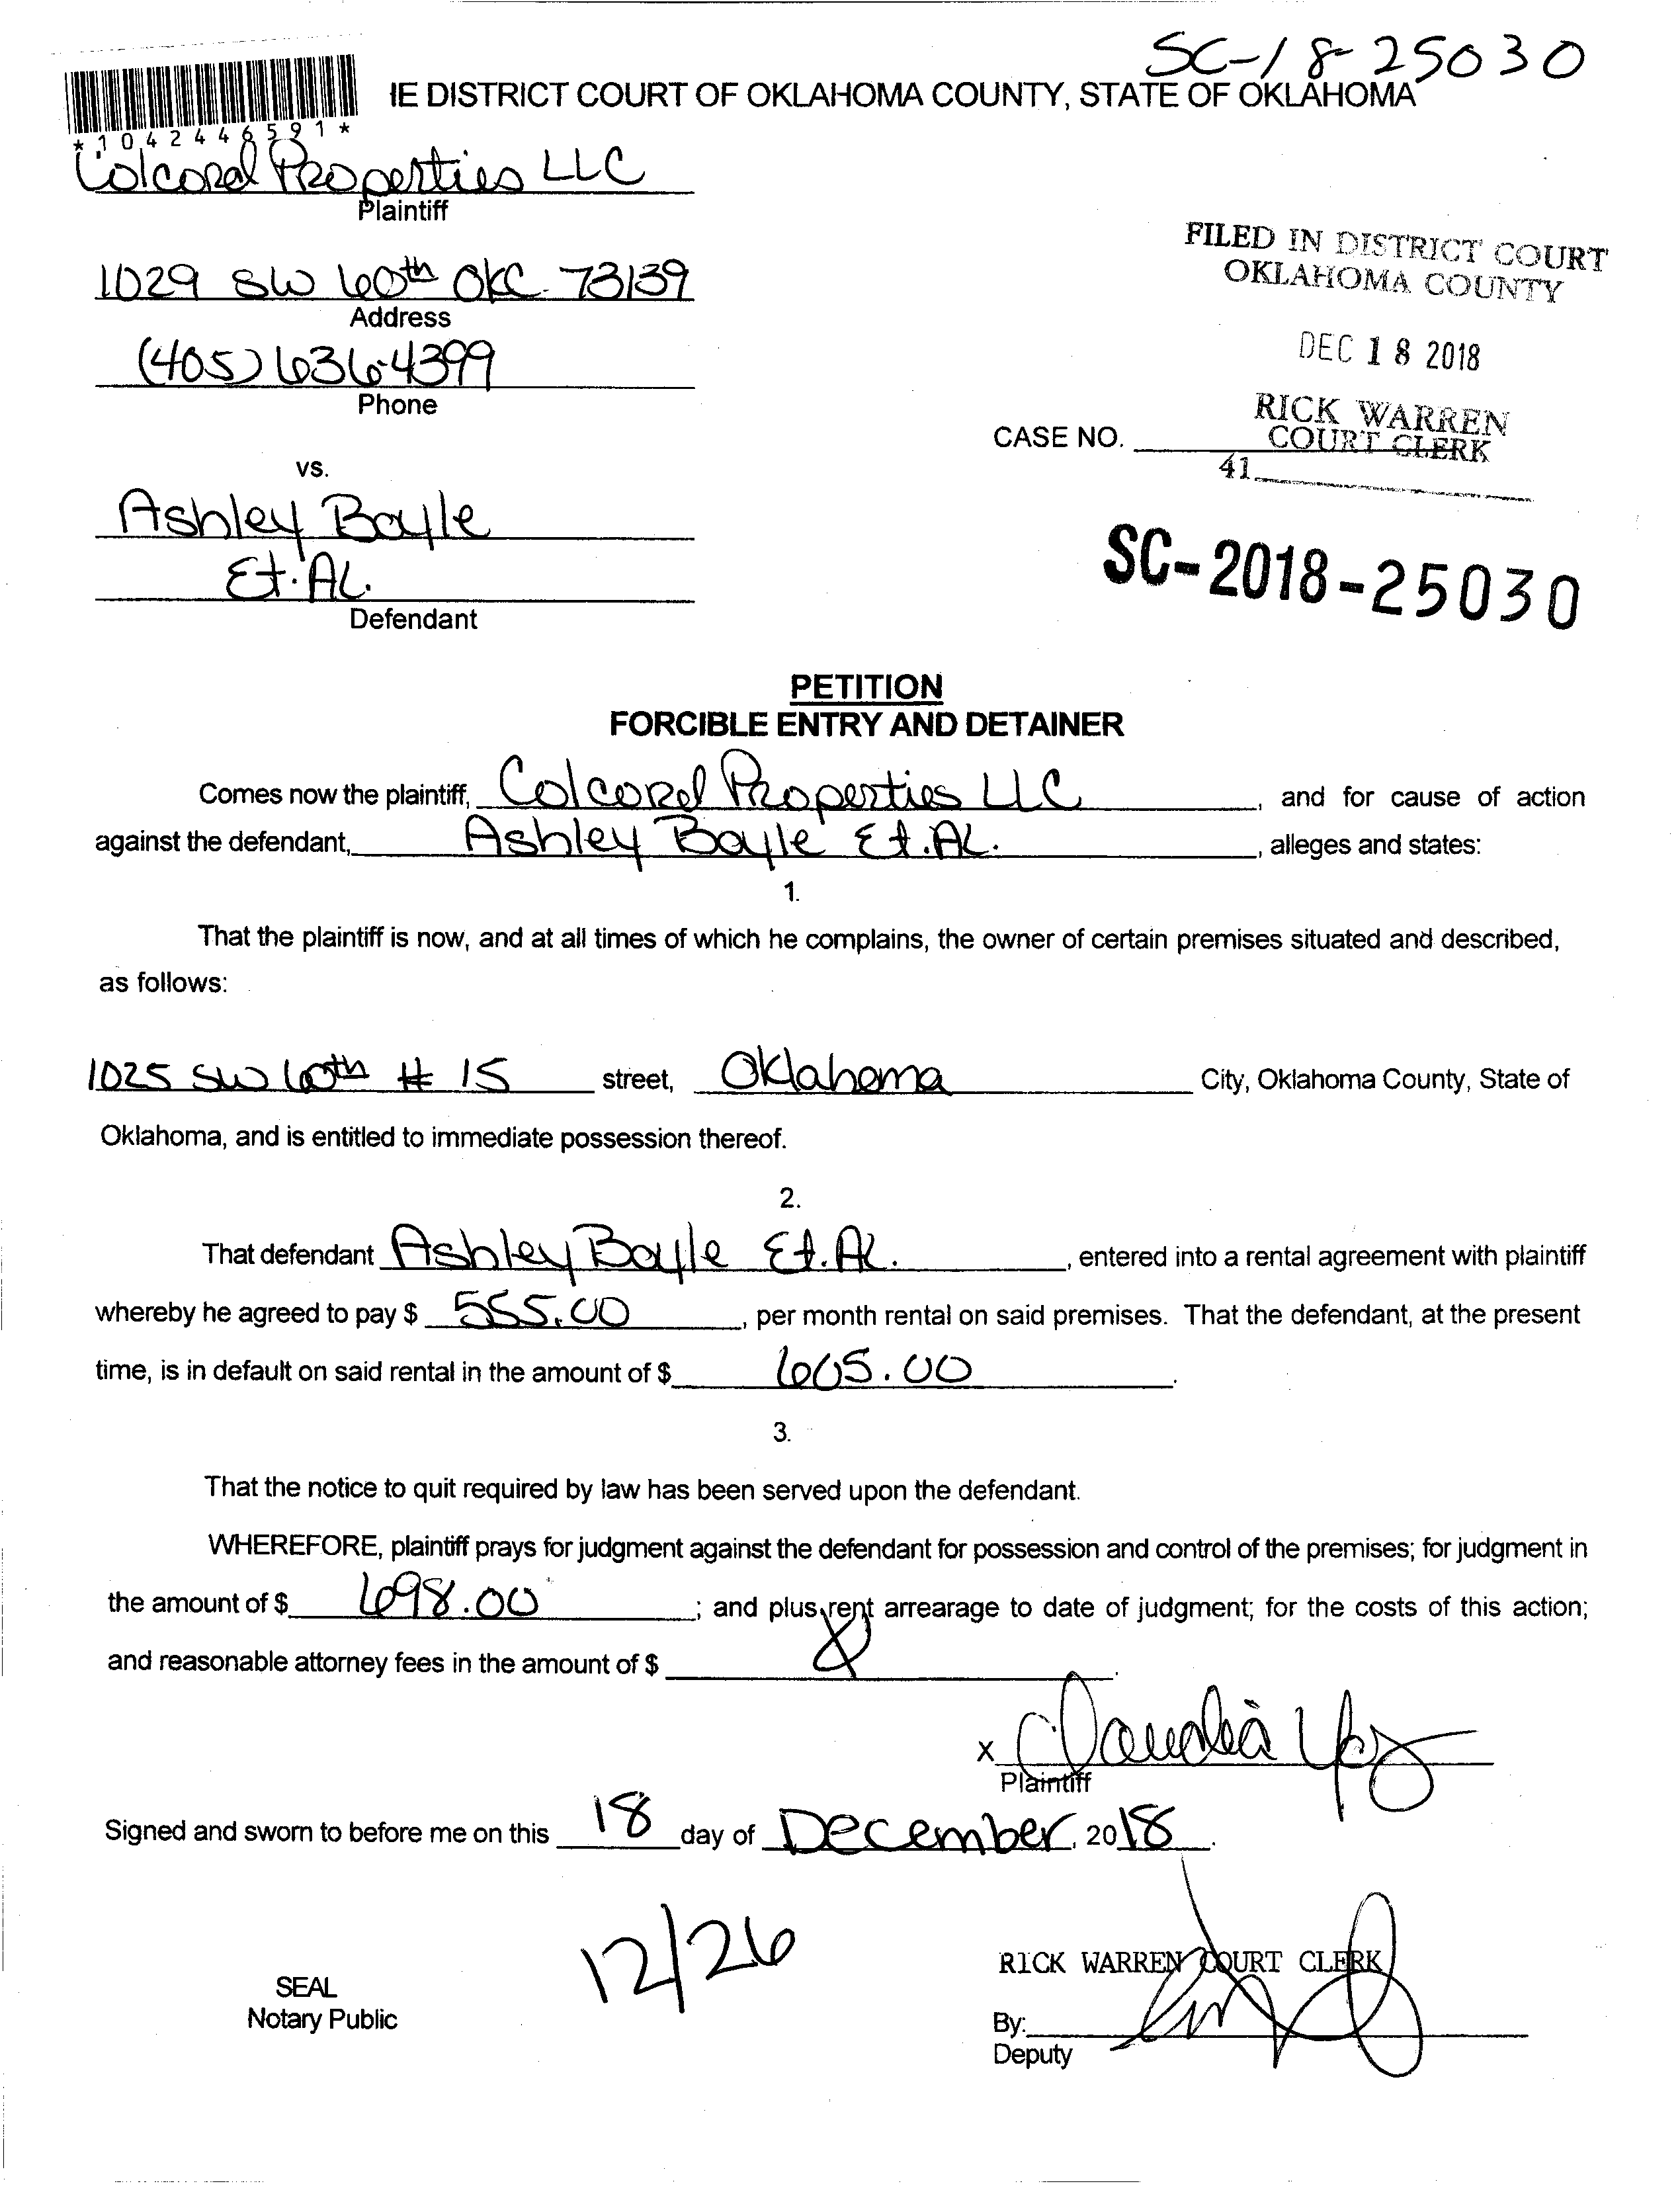 SC-18-25030
IE DISTRICT COURT OF OKLAHOMA COUNTY, STATE OF OKLAHOMA
*1042446591*
Colcord Properties LLC
Plaintiff
1029 SW 60th OKC. 73139
Address
(405) 636-4399
Phone
vs.
Ashley Boyle
Et. AL.
Defendant
FILED IN DISTRICT COURT
OKLAHOMA COUNTY
DEC 18 2018
RICK WARREN
COURT CLERK
CASE NO.
41
SC-2018-25030
PETITION
FORCIBLE ENTRY AND DETAINER
Comes now the plaintiff, Colcord Properties LLC, and for cause of action
against the defendant, Ashley Boyle Et. AL., alleges and states:
1.
That the plaintiff is now, and at all times of which he complains, the owner of certain premises situated and described,
as follows:
1025 SW 60th # 15 street, Oklahoma City, Oklahoma County, State of
Oklahoma, and is entitled to immediate possession thereof.
2.
That defendant Ashley Boyle Et. AL., entered into a rental agreement with plaintiff
whereby he agreed to pay $ 555.00, per month rental on said premises. That the defendant, at the present
time, is in default on said rental in the amount of $ 605.00.
3.
That the notice to quit required by law has been served upon the defendant.
WHEREFORE, plaintiff prays for judgment against the defendant for possession and control of the premises; for judgment in
the amount of $ 698.00; and plus rent arrearage to date of judgment; for the costs of this action;
and reasonable attorney fees in the amount of $
X Claudia
Plaintiff
Signed and sworn to before me on this 18 day of December, 2018.
12/26
SEAL
Notary Public
RICK WARREN COURT CLERK
By:
Deputy